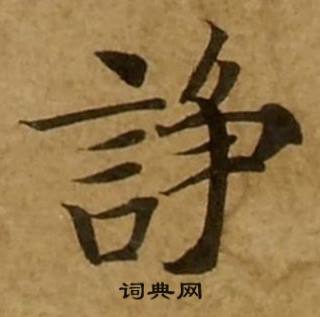 諍
词典网